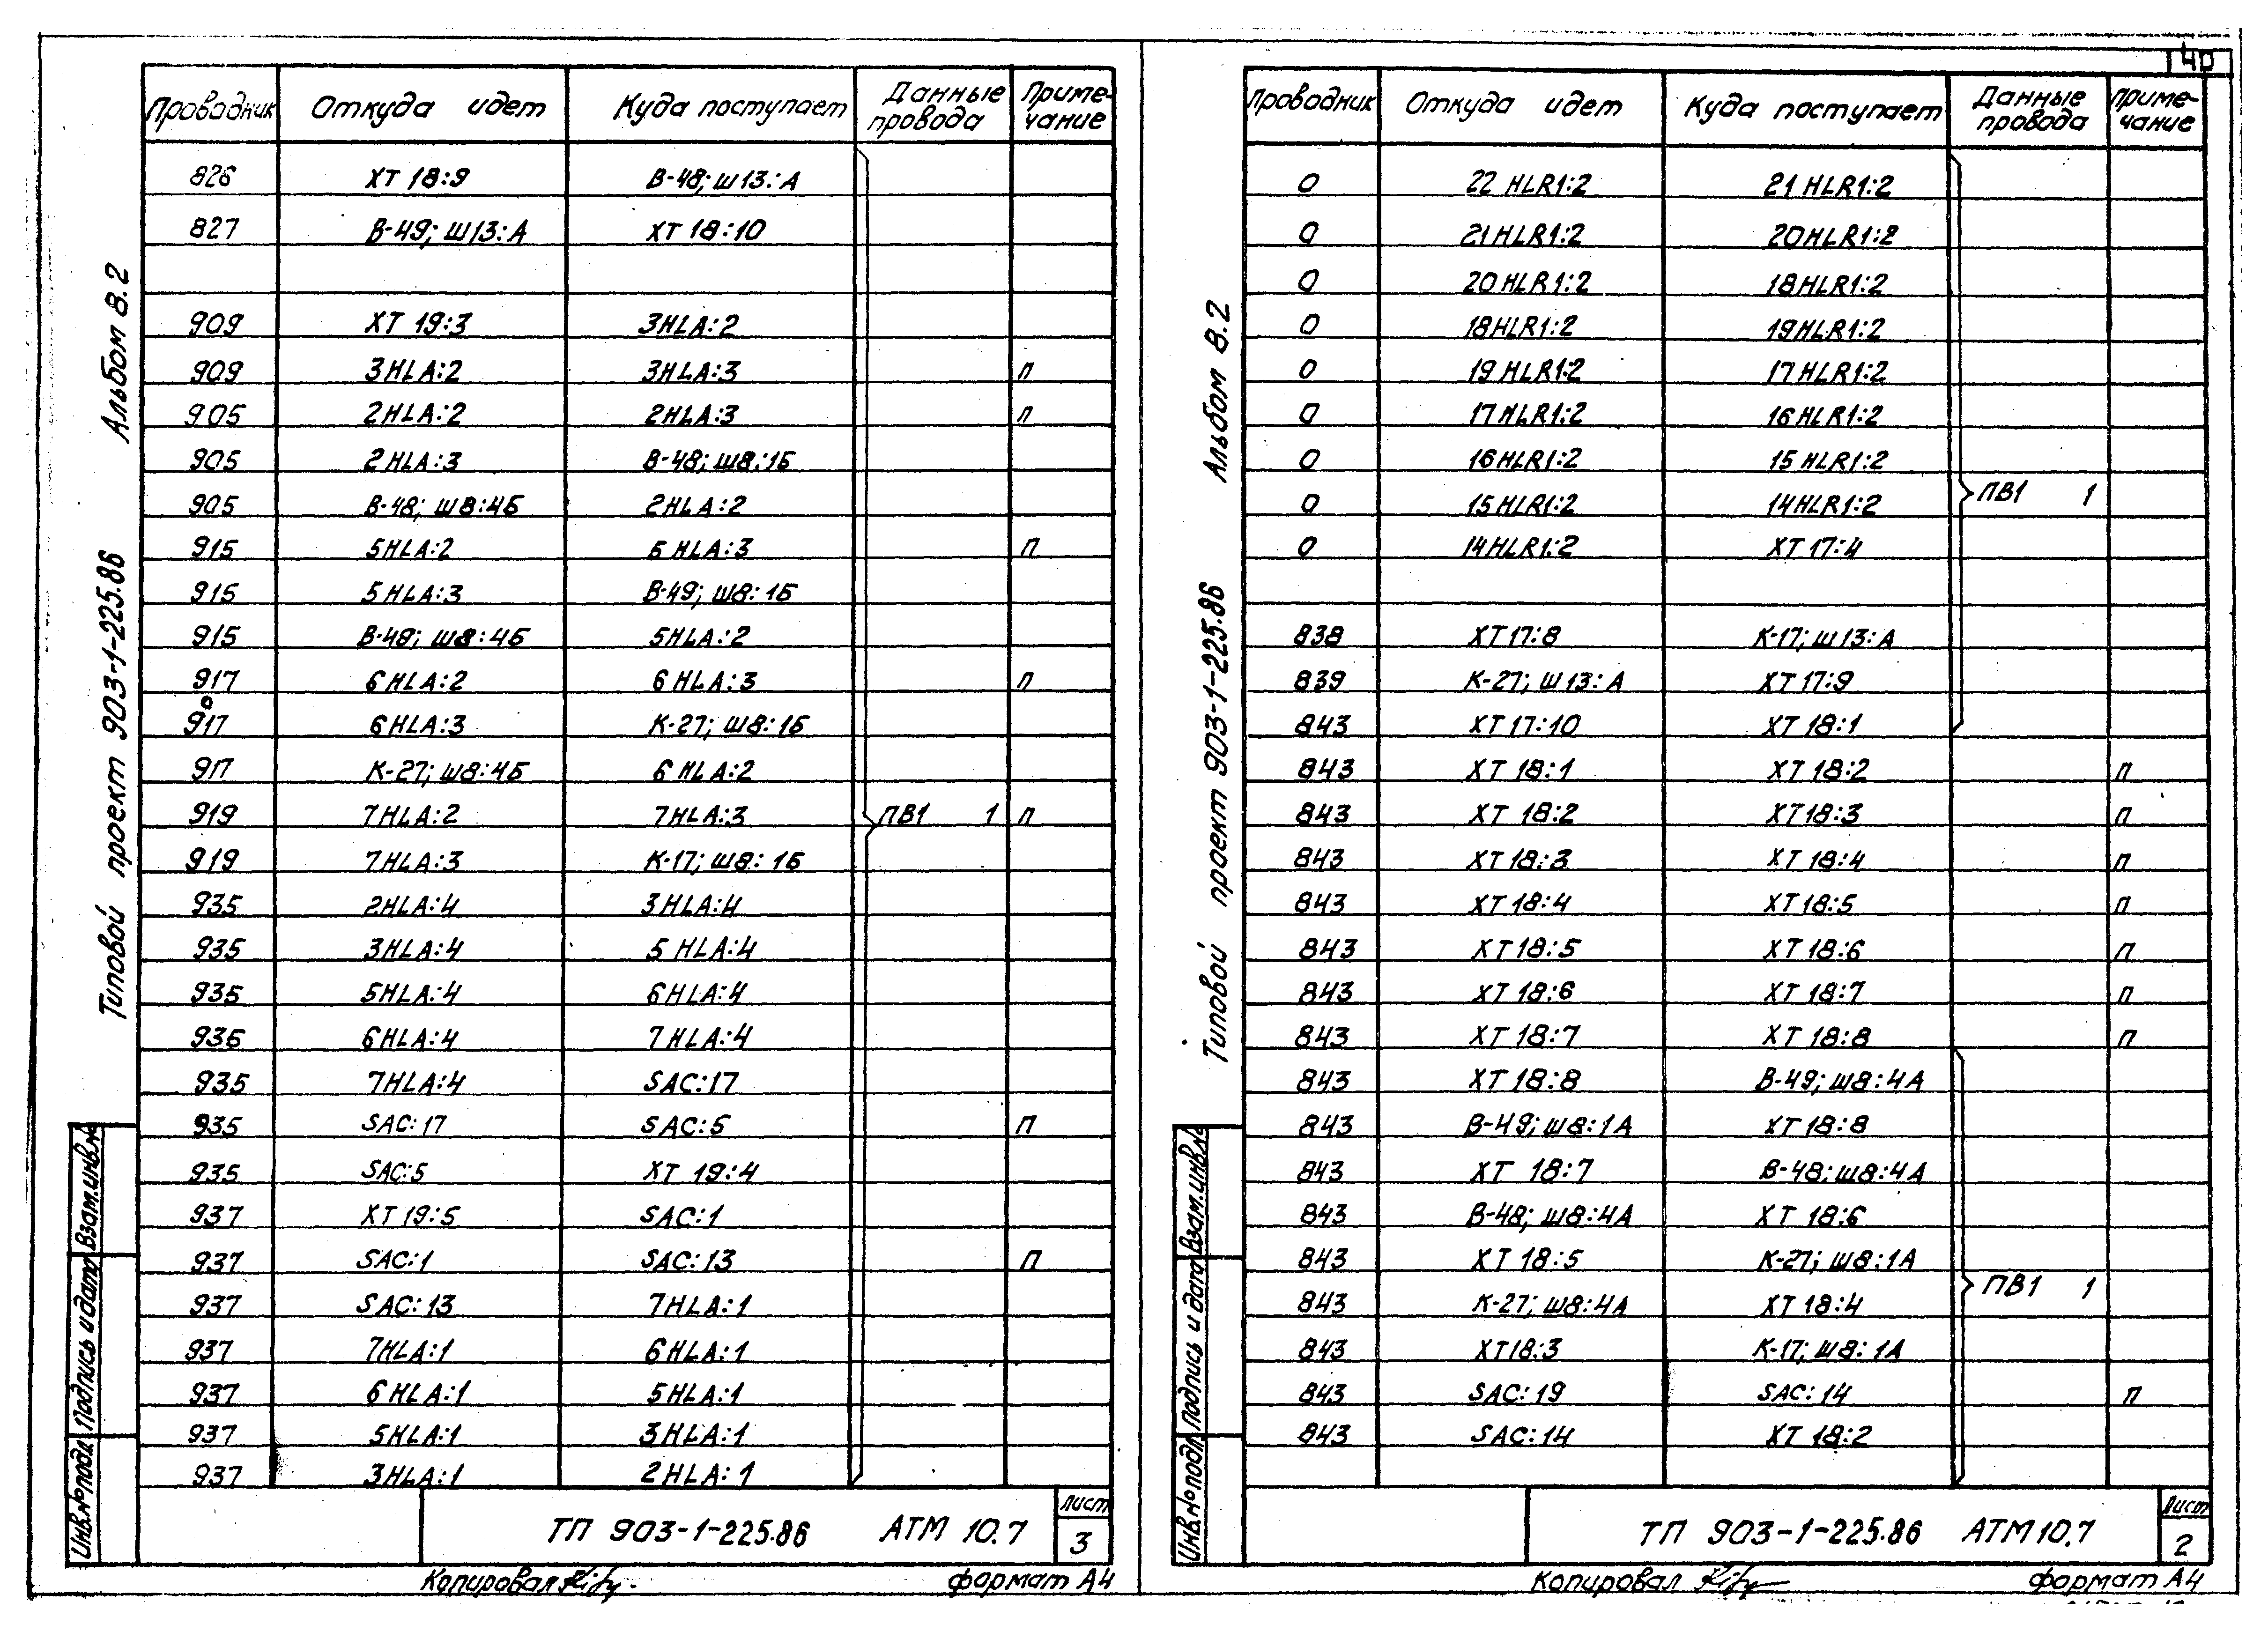 40
Проводник Откуда идет Куда поступает Данные провода Примечание
826 ХТ 18:9 В-48; Ш13:А
827 В-49; Ш13:А ХТ 18:10
909 ХТ 19:3 3HLA:2
909 3HLA:2 3HLA:3 П
905 2HLA:2 2HLA:3 П
905 2HLA:3 В-48; Ш8:1Б
905 В-48; Ш8:4Б 2HLA:2
915 5HLA:2 5HLA:3 П
915 5HLA:3 В-49; Ш8:1Б
915 В-49; Ш8:4Б 5HLA:2
917 6HLA:2 6HLA:3 П
917 6HLA:3 К-27; Ш8:1Б
917 К-27; Ш8:4Б 6HLA:2
919 7HLA:2 7HLA:3 ПВ1 1 П
919 7HLA:3 К-17; Ш8:1Б
935 2HLA:4 3HLA:4
935 3HLA:4 5HLA:4
935 5HLA:4 6HLA:4
935 6HLA:4 7HLA:4
935 7HLA:4 SAC:17
935 SAC:17 SAC:5 П
935 SAC:5 ХТ 19:4
937 ХТ 19:5 SAC:1
937 SAC:1 SAC:13 П
937 SAC:13 7HLA:1
937 7HLA:1 6HLA:1
937 6HLA:1 5HLA:1
937 5HLA:1 3HLA:1
937 3HLA:1 2HLA:1
ТП 903-1-225.86 АТМ 10.7
Лист
3
Копировал
формат А4
Типовой проект 903-1-225.86 Альбом 8.2
Инв.№подл Подпись и дата Взам.инв.№
Проводник Откуда идет Куда поступает Данные провода Примечание
0 22HLR1:2 21HLR1:2
0 21HLR1:2 20HLR1:2
0 20HLR1:2 18HLR1:2
0 18HLR1:2 19HLR1:2
0 19HLR1:2 17HLR1:2
0 17HLR1:2 16HLR1:2
0 16HLR1:2 15HLR1:2
0 15HLR1:2 14HLR1:2 ПВ1 1
0 14HLR1:2 ХТ 17:4
838 ХТ 17:8 К-17; Ш13:А
839 К-27; Ш13:А ХТ 17:9
843 ХТ 17:10 ХТ 18:1
843 ХТ 18:1 ХТ 18:2 П
843 ХТ 18:2 ХТ 18:3 П
843 ХТ 18:3 ХТ 18:4 П
843 ХТ 18:4 ХТ 18:5 П
843 ХТ 18:5 ХТ 18:6 П
843 ХТ 18:6 ХТ 18:7 П
843 ХТ 18:7 ХТ 18:8 П
843 ХТ 18:8 В-49; Ш8:4А
843 В-49; Ш8:1А ХТ 18:8
843 ХТ 18:7 В-48; Ш8:4А
843 В-48; Ш8:4А ХТ 18:6
843 ХТ 18:5 К-27; Ш8:1А
843 К-27; Ш8:4А ХТ 18:4 ПВ1 1
843 ХТ 18:3 К-17; Ш8:1А
843 SAC:19 SAC:14 П
843 SAC:14 ХТ 18:2
ТП 903-1-225.86 АТМ 10.7
Лист
2
Копировал
формат А4
Типовой проект 903-1-225.86 Альбом 8.2
Инв.№подл Подпись и дата Взам.инв.№